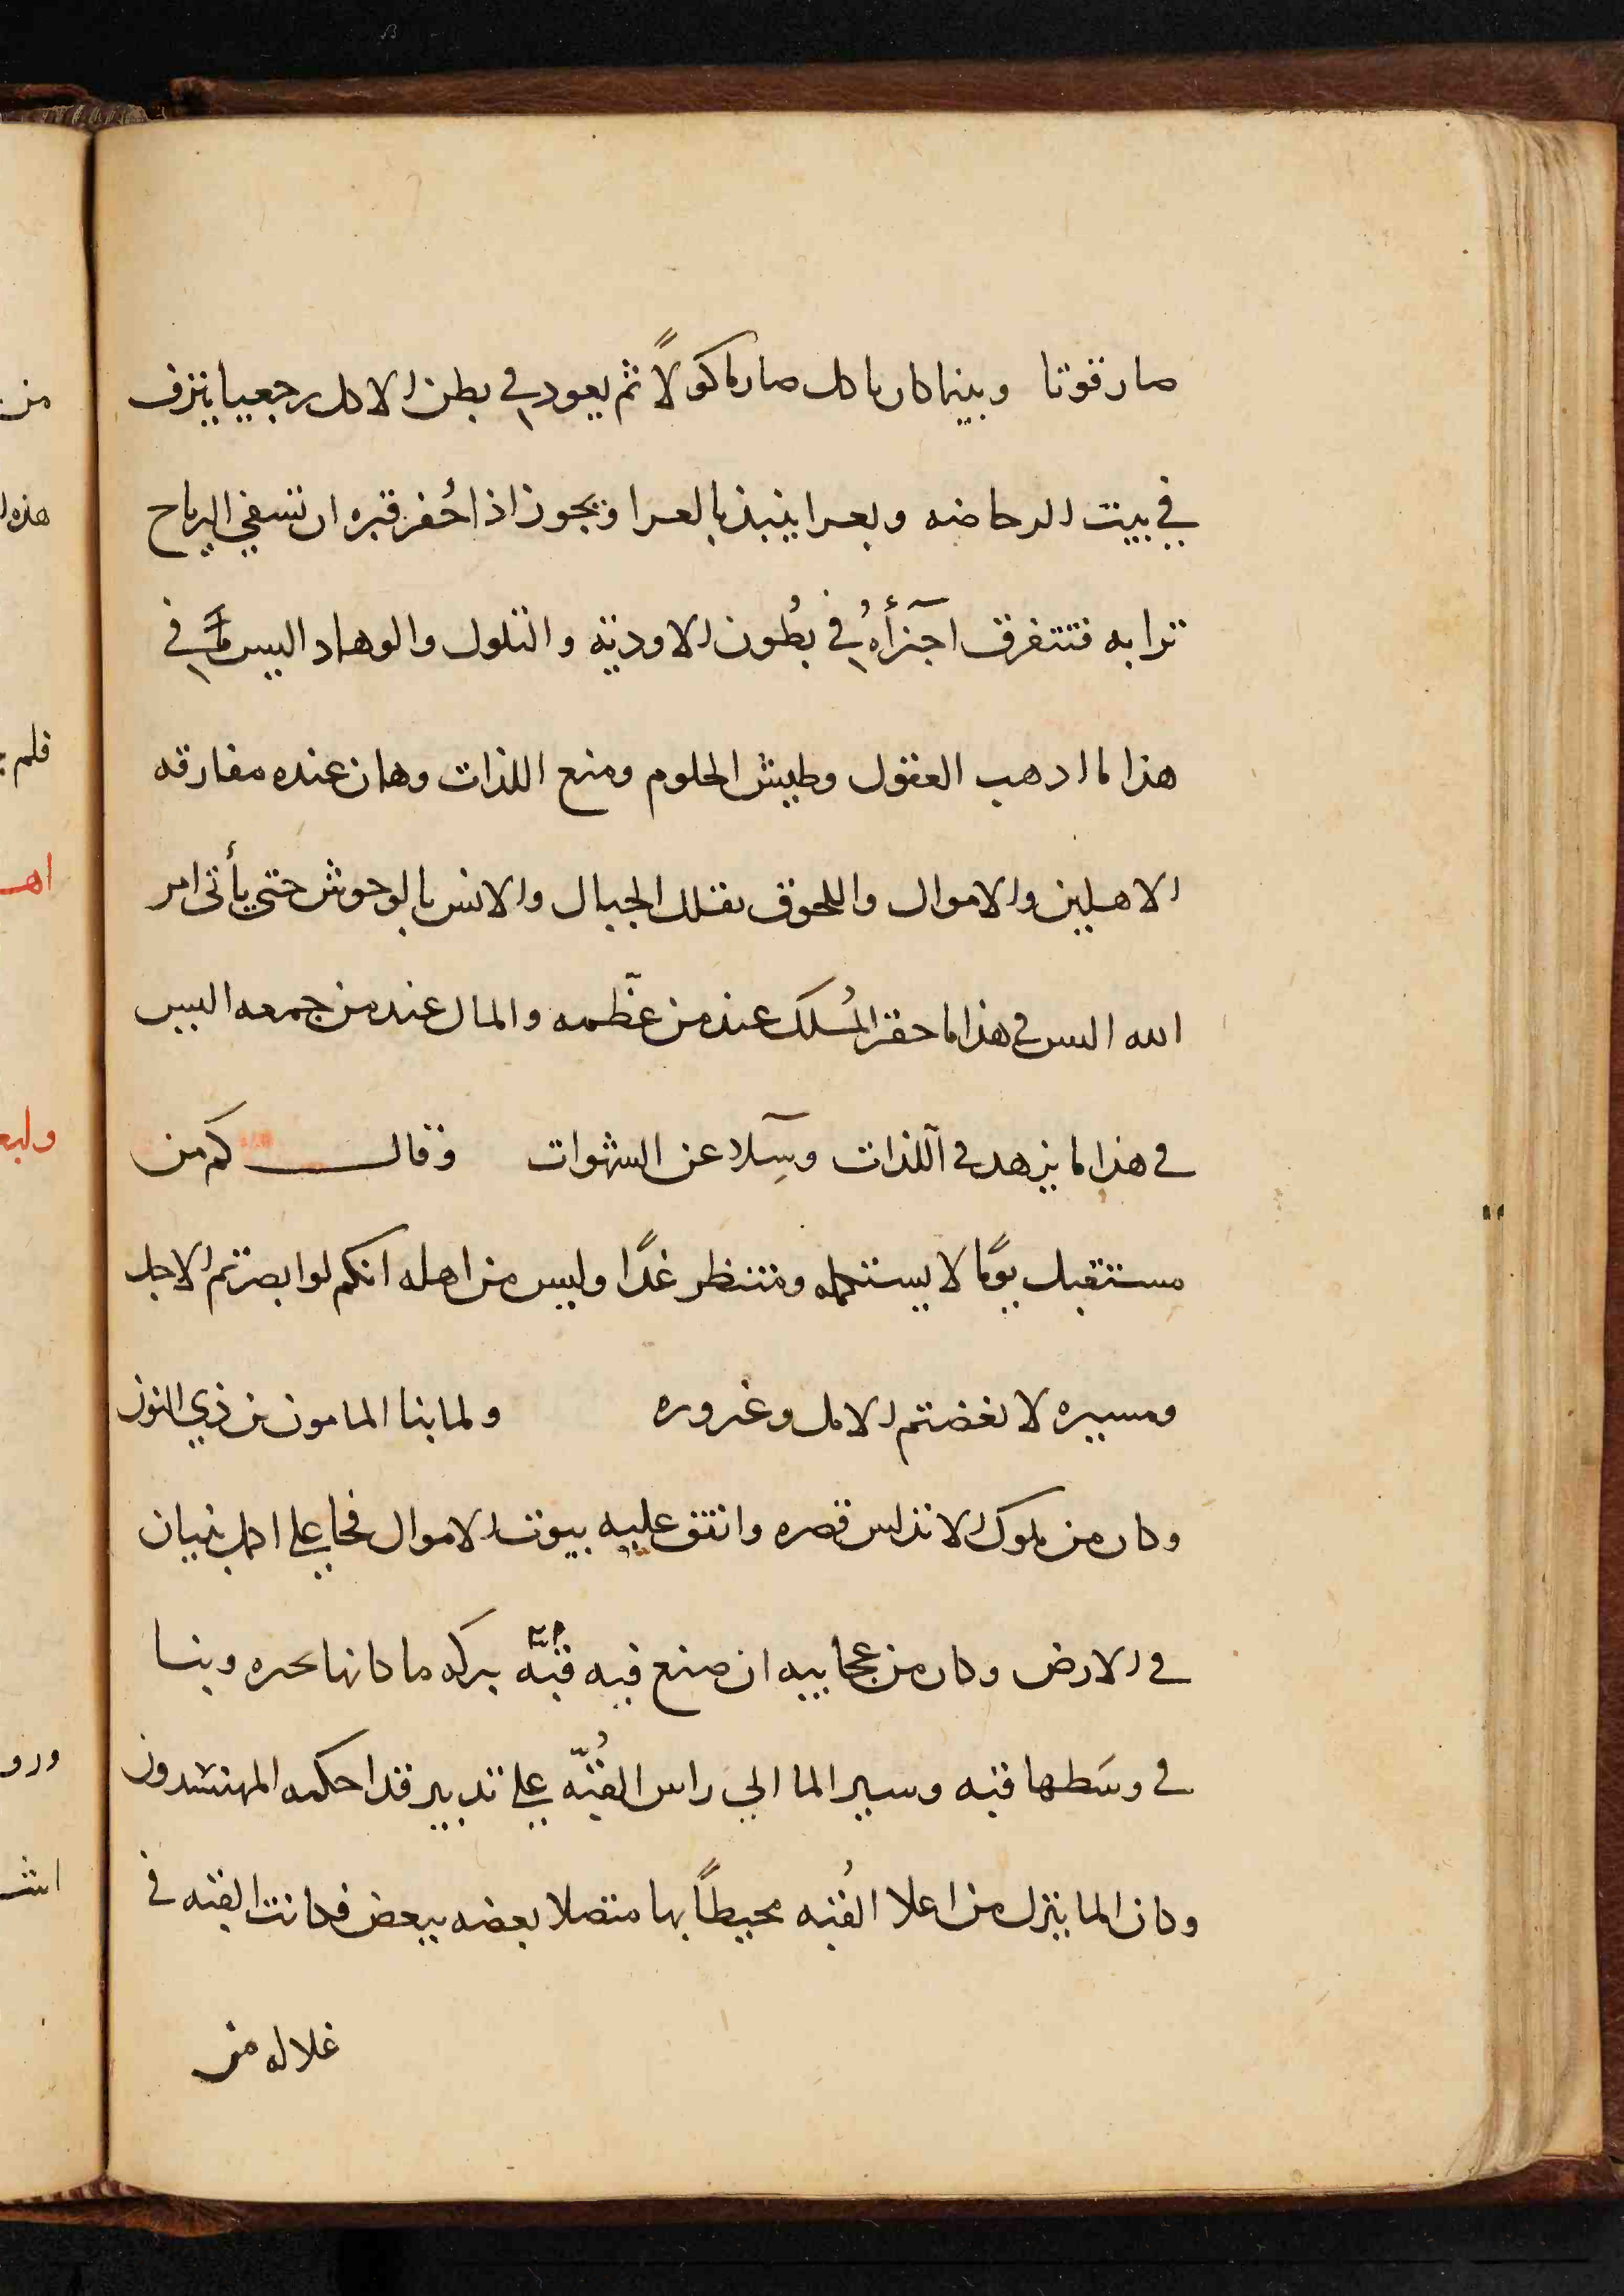 صار قوتا وبينما كان ياكل صار ماكولاً ثم يعود في بطن الاكل رجعيا ينزف
في بيت الرحاضه وبعرا ينبذ بالعرا ويجوز اذا احُفر قبره ان تسفي الرياح
ترابه فتتفرق اجزآؤهُ في بطُون الاودية والتلول والوهاد اليس في
هذا ما اذهب العقول وطيش الحلوم ومنع اللذات وهان عنده مفارقه
الاهلين والاموال واللحوق بقلل الجبال والانس بالوحوش حتى يأتى امر
الله اليس في هذا ما حقر المُلك عند من عظّمه والمال عند من جمعه اليس
في هذا ما يزهد في اللذات ويسلا عن الشهوات وقال كم من
مستقبل يومًا لا يستكمله ومنتظر غدًا وليس من اهله انكم لو ابصرتم الاجل
ومسيره لابغضتم الامل وغروره ولما بنا المامون بن ذي النون
وكان من ملوك الاندلس قصره وانفق عليه بيوت الاموال فجا على اكمل بنيان
في الارض وكان من عجايبه ان صنع فيه قبّه بركه ماكانها بحره وبنا
في وسَطها قبه وسير الما الي راس القُبّه علي تدبير قد احكمه المهندسون
وكان الما ينزل من اعلا القُبه محيطاً بها متصلا بعضه ببعض فكانت القبه في
غلاله من
من
هذه
فلم
ورو